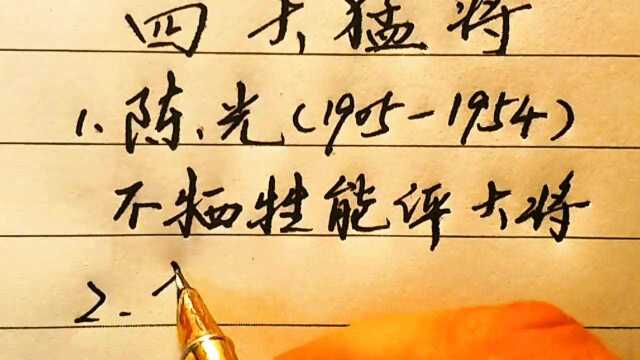 四大猛将
1.陈光(1905-1954)
不牺牲能评大将
2.